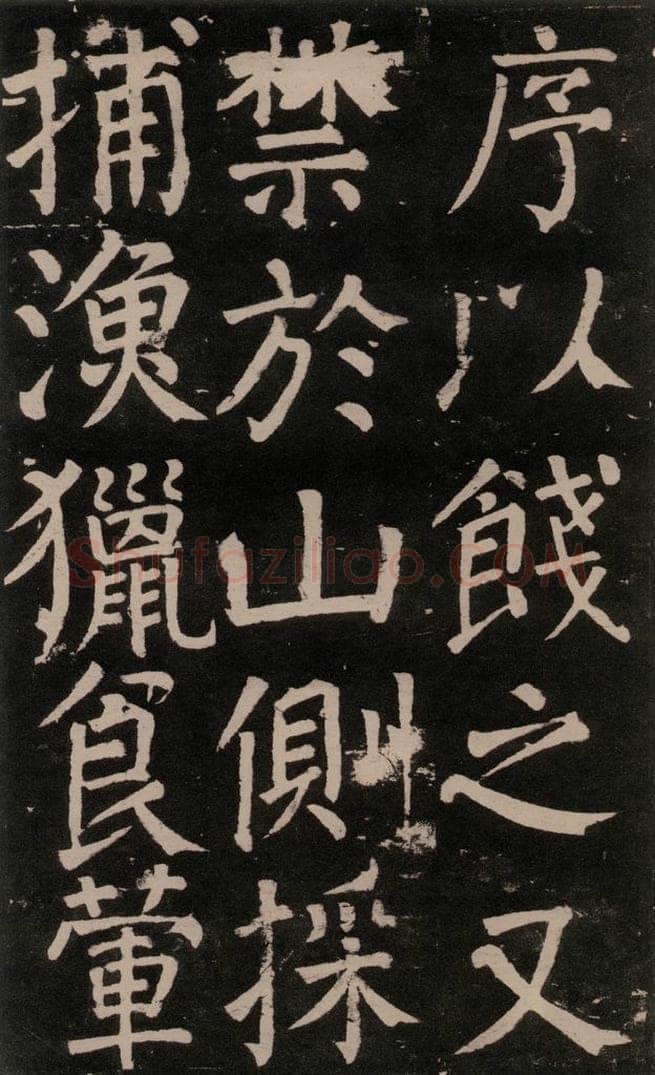 序以餞之又
禁於山側採
捕漁獵食葷
Shufaziliao.COM